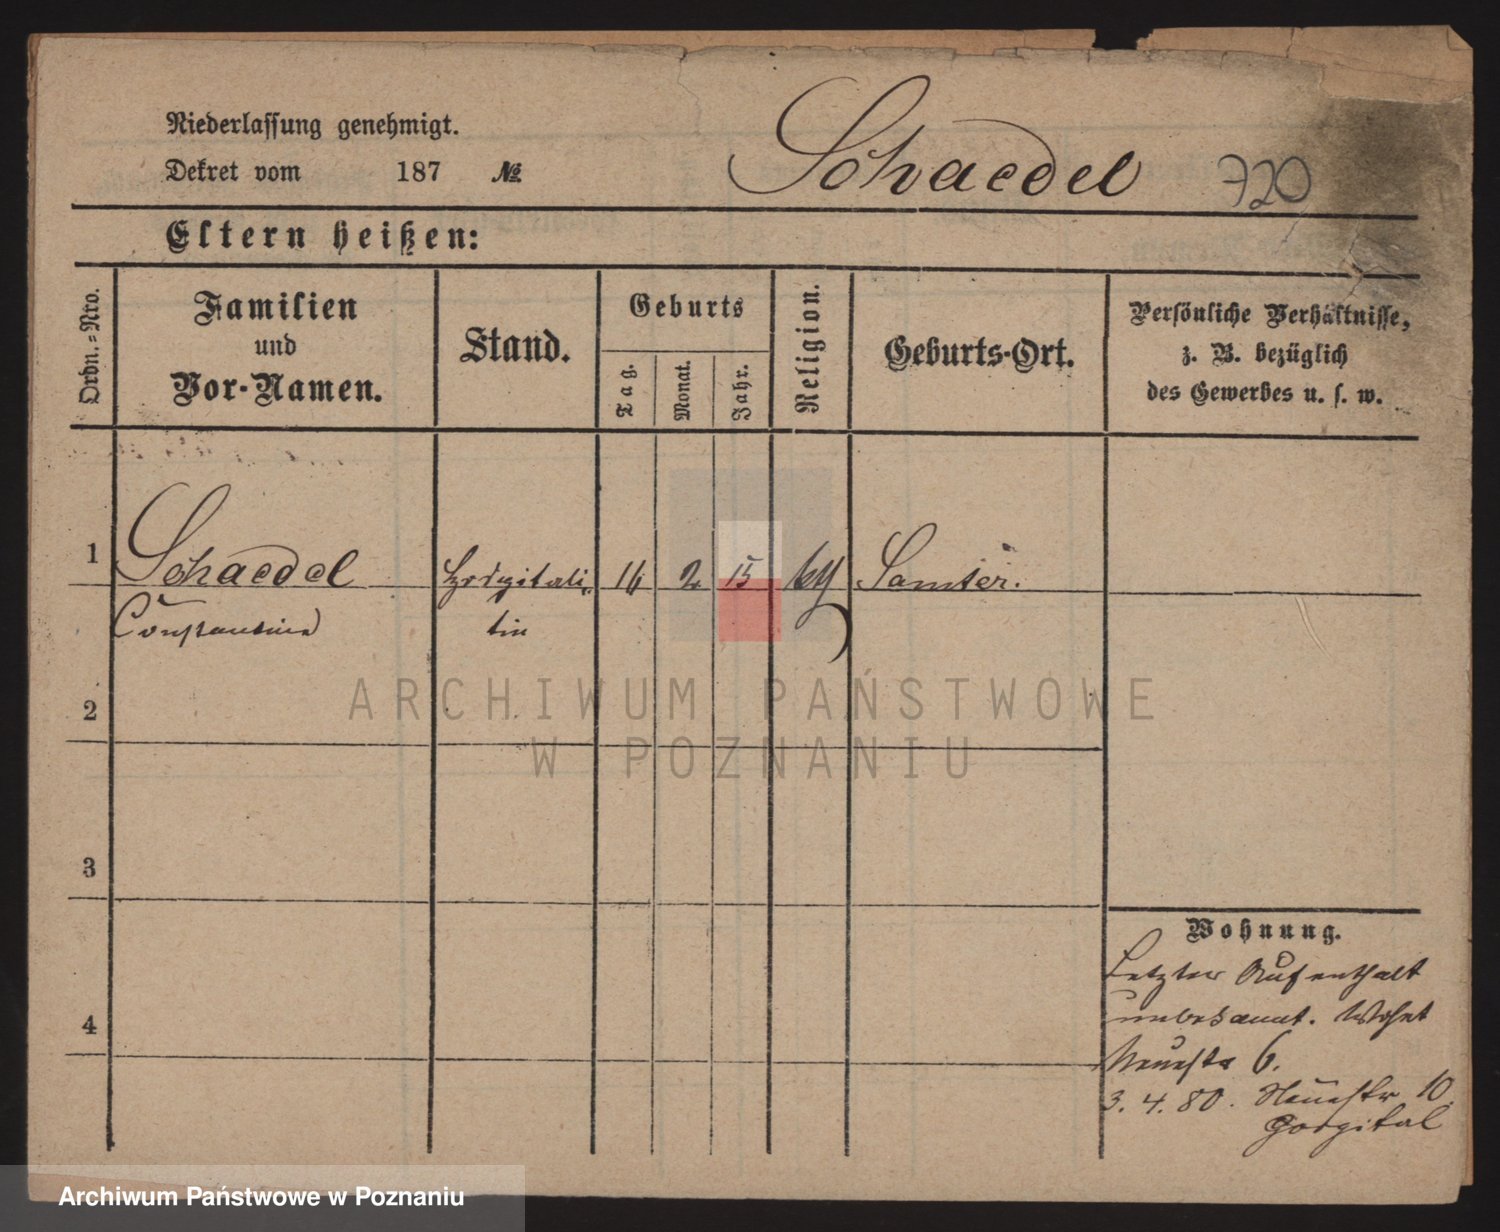 Niederlassung genehmigt.
Dekret vom 187 №
Schaedel 720
Eltern heißen:
Ordn.-Nro.
Familien
und
Vor-Namen.
Stand.
Geburts
Tag.
Monat.
Jahr.
Religion.
Geburts-Ort.
Persönliche Verhältnisse,
z. B. bezüglich
des Gewerbes u. s. w.
1 Schaedel Hospitali- 16 2 15 Samter.
Constantina tin
2
3
4
Wohnung.
Letzter Aufenthalt
unbekannt. Wohnt
Neuestr 6.
3. 4. 80. Neuestr 10.
Hospital
ARCHIWUM PAŃSTWOWE
W POZNANIU
Archiwum Państwowe w Poznaniu